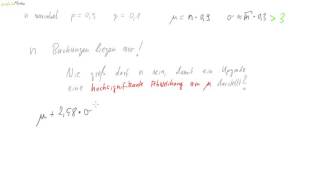 n variabel p = 0,9 q = 0,1 μ = n · 0,9 σ = √n · 0,3 > 3
n Buchungen liegen vor!
Wie groß darf n sein, damit ein Upgrade
eine hochsignifikante Abweichung von μ darstellt?
μ + 2,58 · σ